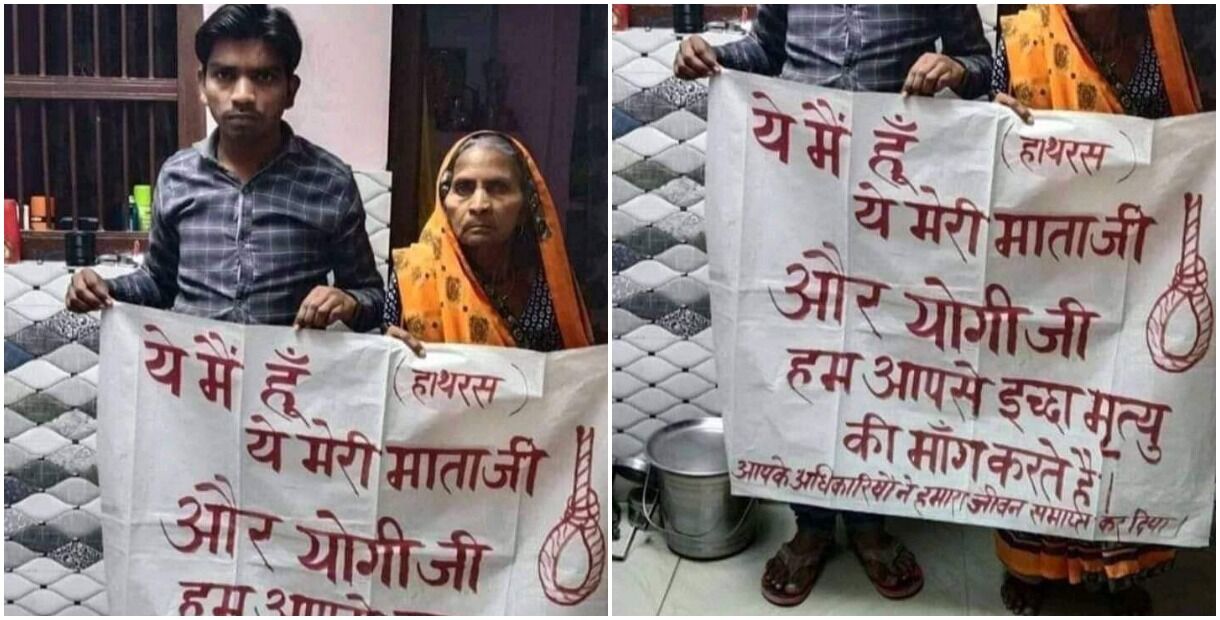 ये मैं हूँ (हाथरस)
ये मेरी माताजी
और योगीजी
हम
ये मैं हूँ (हाथरस)
ये मेरी माताजी
और योगीजी
हम आपसे इच्छा मृत्यु
की माँग करते है।
आपके अधिकारियो ने हमारा जीवन समाप्त कर दिया।